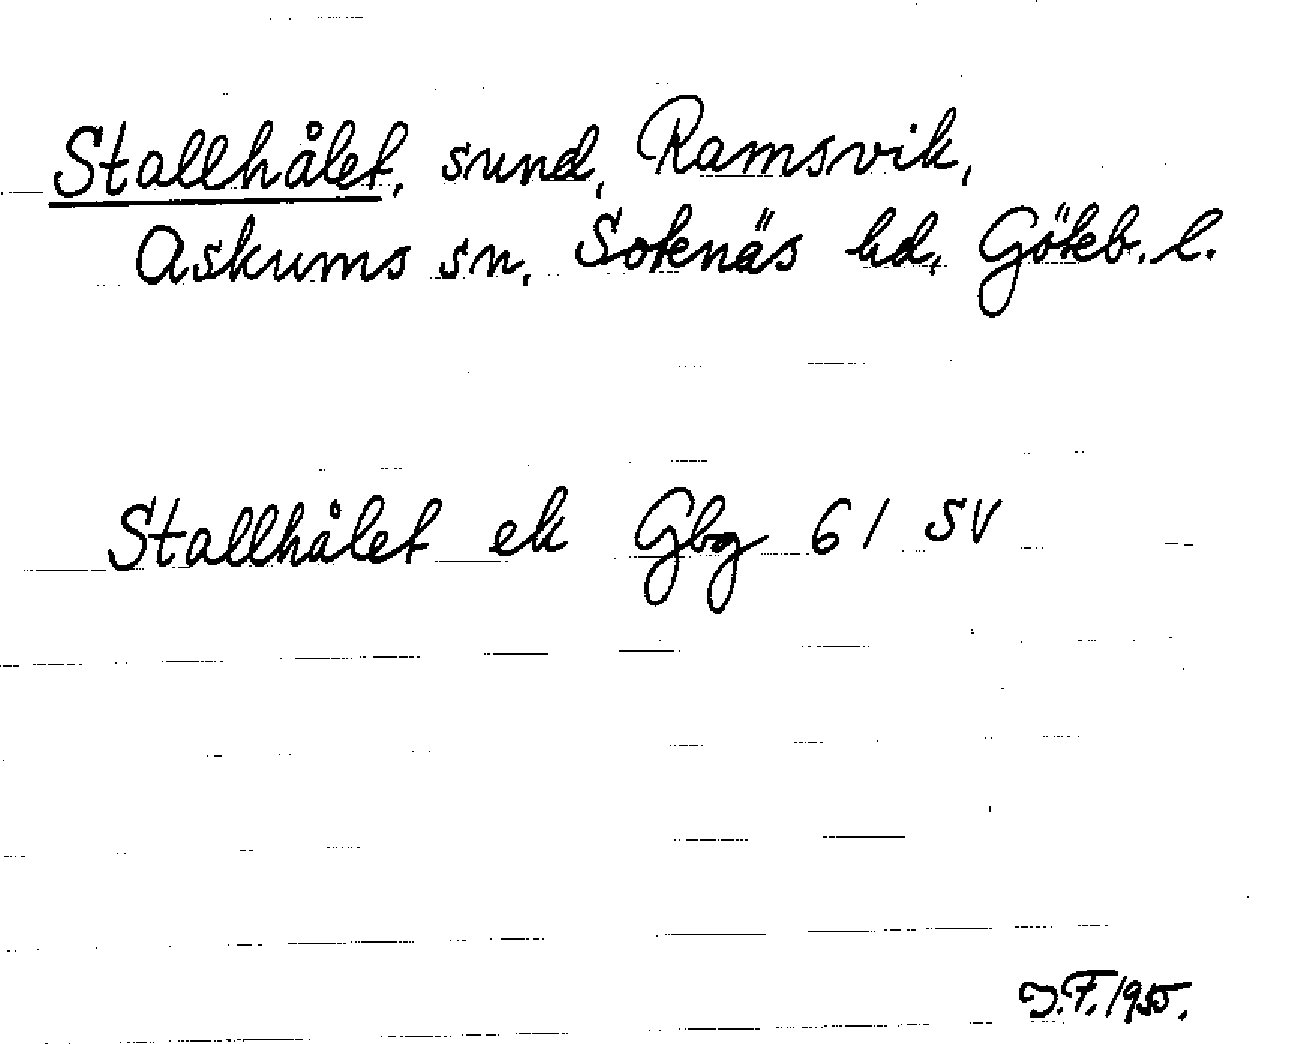 Stallhålet, sund, Ramsvik,
Askums sn, Sotenäs hd, Göteb. l.
Stallhålet ek Gbg 61 SV
J.F. 1955.